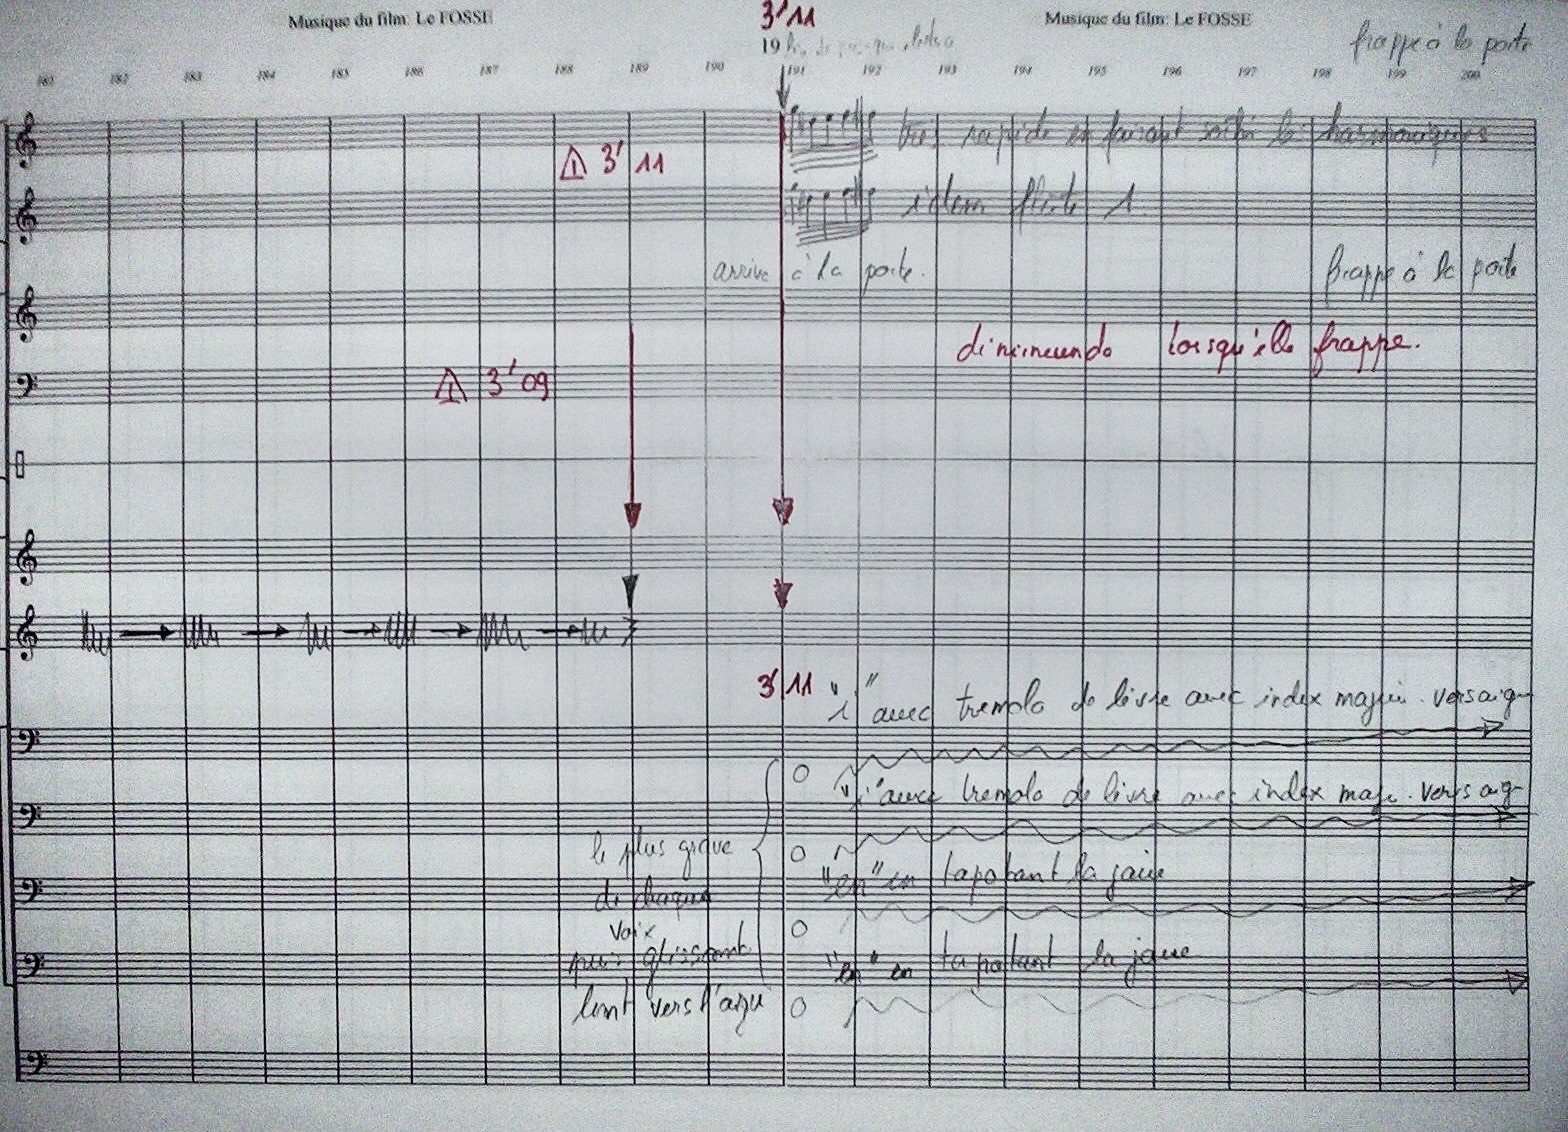 Musique du film: Le FOSSE
3'11
Musique du film: Le FOSSE
19
frappe à la porte
181 182 183 184 185 186 187 188 189 190 191 192 193 194 195 196 197 198 199 200
très rapide en faisant sortir les harmoniques
⚠ 3'11
idem flûte 1
arrive à la porte.
frappe à la porte
diminuendo lorsqu'elle frappe.
⚠ 3'09
3'11
"i" avec tremolo de lèvre avec index majeur. vers aigu
"i" avec tremolo de lèvre avec index maj. vers aig
le plus grave
"en" en tapotant la joue
de chaque
voix
puis glissant
"en" en tapotant la joue
lent vers l'aigu